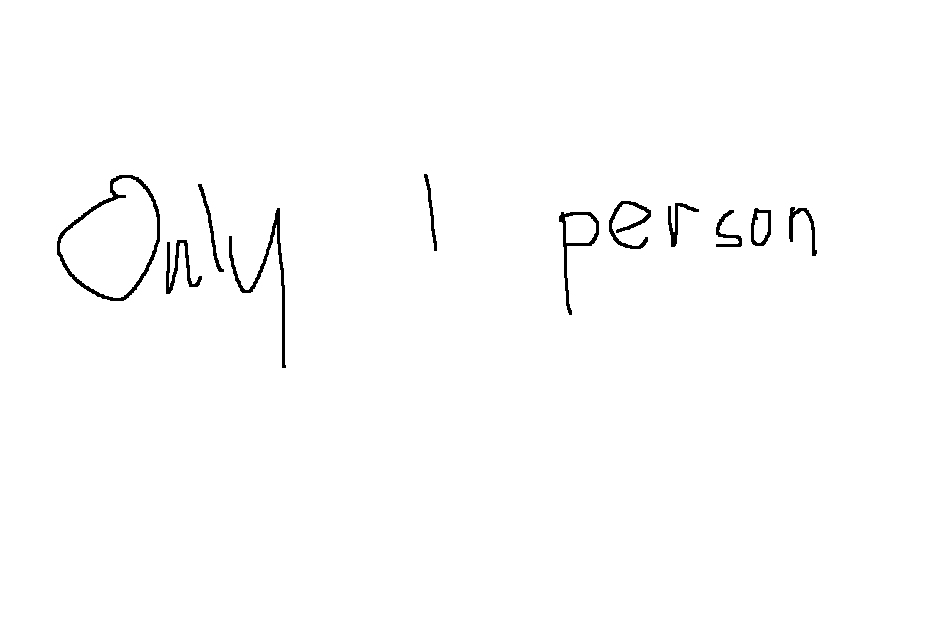 Only 1 person